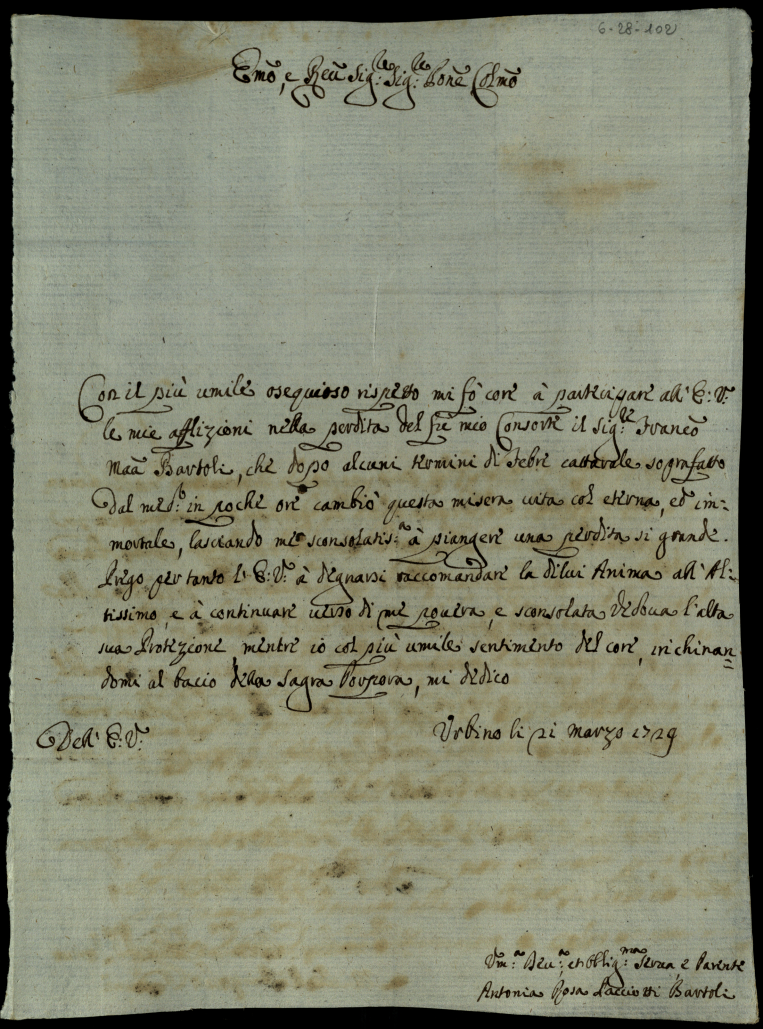 6-28-102
Emõ, e Reũ Sig:re Sig:re Pōne Colmõ
Con il più umile osequioso rispetto mi fò core à participare all' E: V:
le mie afflizioni nella perdita del fù mio Consorte il Sig:re Franc̃o
Maã Bartoli, che dopo alcuni termini di Febre cattarale soprafatto
dal med:o in poche ore cambiò questa misera vita col eterna, ed im=
mortale, lasciando me sconsolatis:a à piangere una perdita si grande.
Prego per tanto l' E: V: à degnarsi raccomandare la dilui Anima all' Al=
tissimo, e à continuare verso di me povera, e sconsolata Vedova l'alta
sua Protezione, mentre io col più umile sentimento del core, inchinan=
domi al bacio della Sagra Porpora, mi dedico
Dell' E: V:
Urbino li 21 Marzo 1729
Um:a Deu:a, et Oblig:ma Serua, e Parente
Antonia Rosa Pacciotti Bartoli